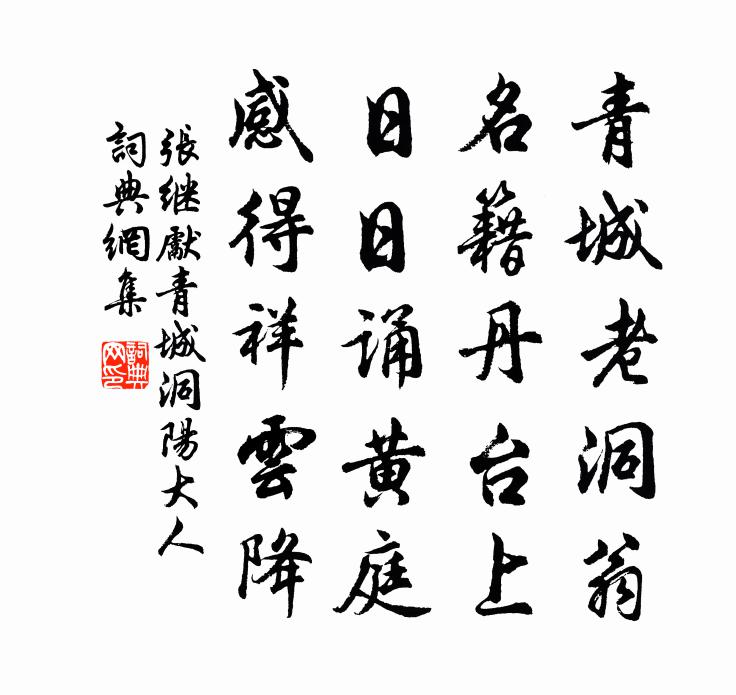 青城老洞翁
名籍丹台上
日日诵黄庭
感得祥雲降
張继獻青城洞陽大人
詞典網集
詞典網印